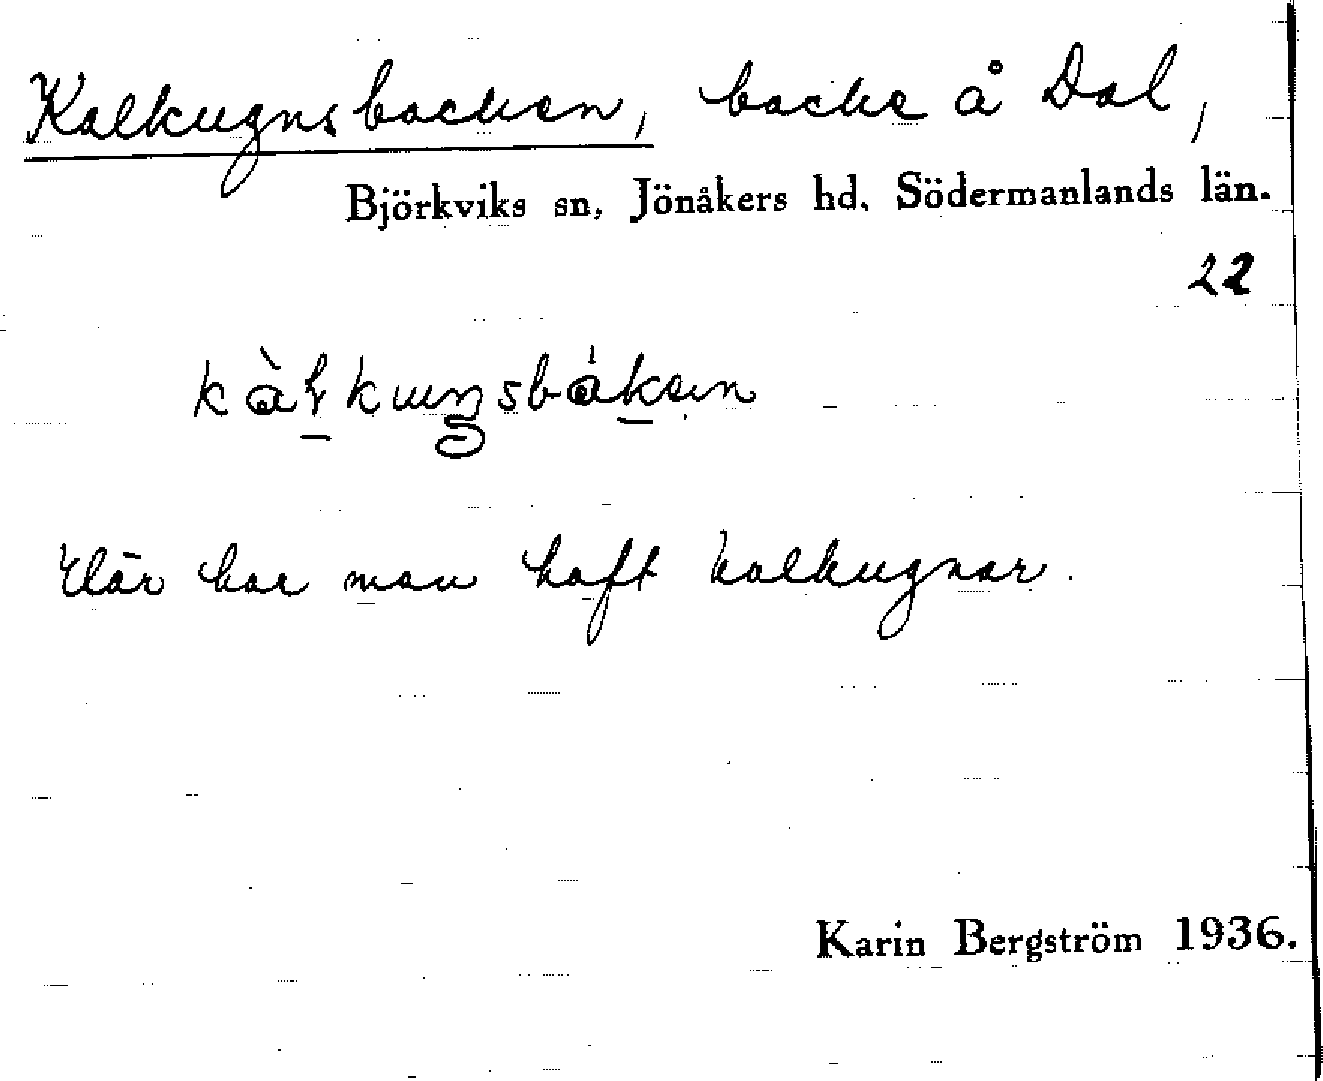 Kalkugnsbacken, backe å Dal,
Björkviks sn, Jönåkers hd. Södermanlands län.
22
Där har man haft kalkugnar.
Karin Bergström 1936.